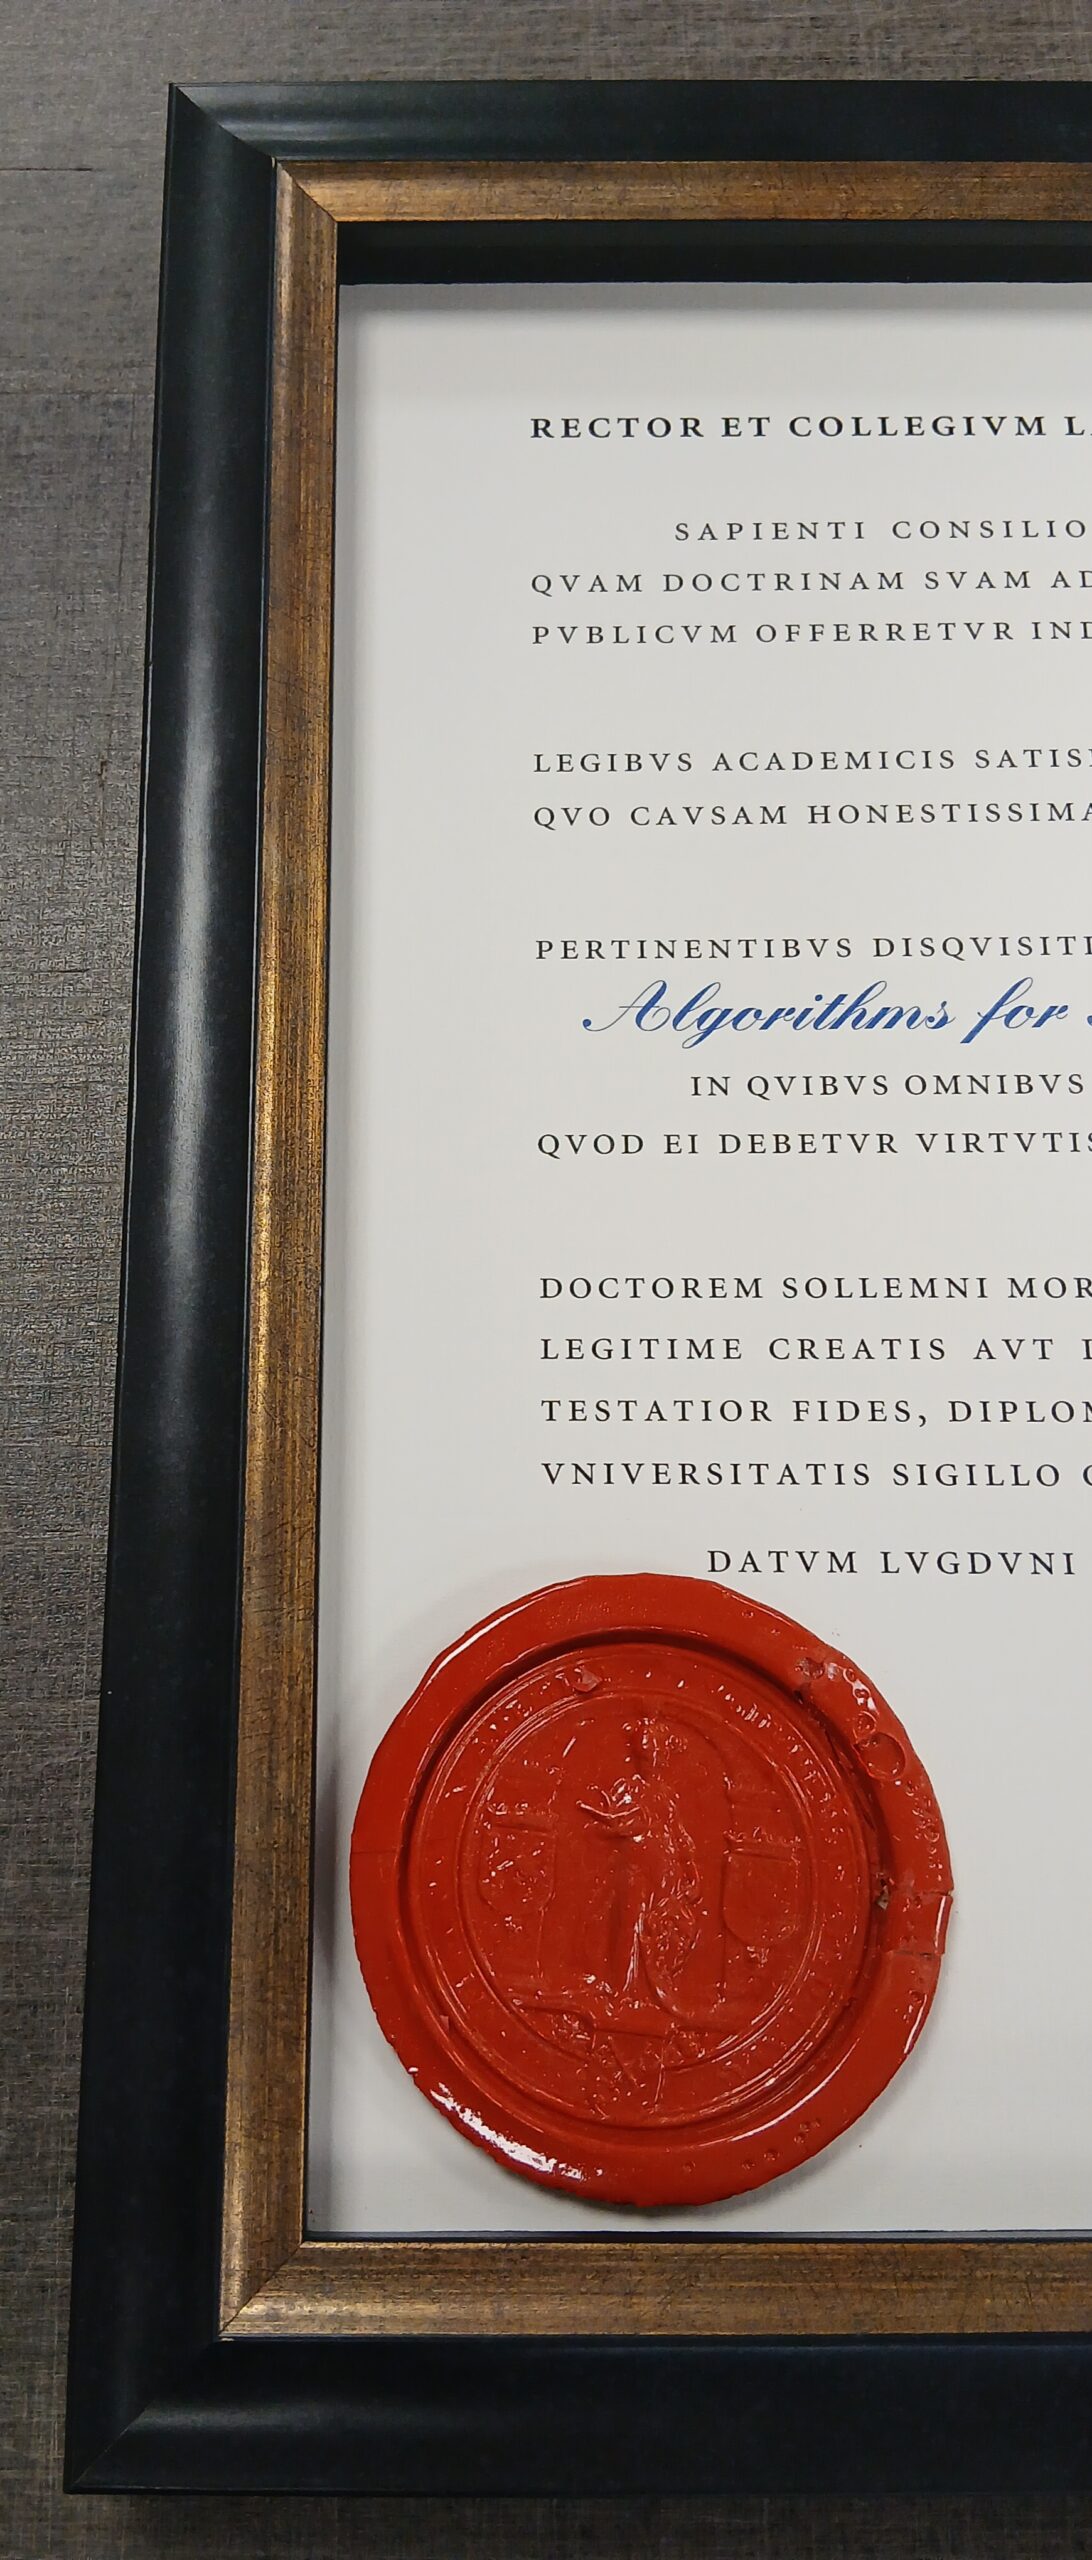 RECTOR ET COLLEGIVM L
SAPIENTI CONSILIO
QVAM DOCTRINAM SVAM AD
PVBLICVM OFFERRETVR IND
LEGIBVS ACADEMICIS SATIS
QVO CAVSAM HONESTISSIMA
PERTINENTIBVS DISQVISITI
Algorithms for
IN QVIBVS OMNIBVS
QVOD EI DEBETVR VIRTVTIS
DOCTOREM SOLLEMNI MOR
LEGITIME CREATIS AVT
TESTATIOR FIDES, DIPLOM
VNIVERSITATIS SIGILLO
DATVM LVGDVNI